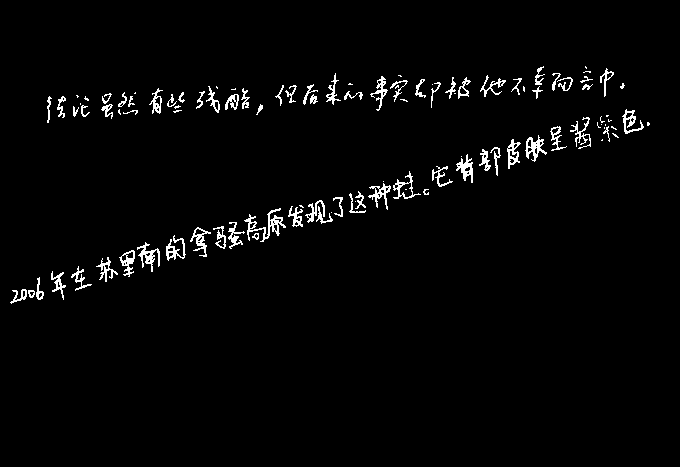 结论虽然有些残酷，但后来的事实却被他不幸而言中。
2006年在苏里南的拿骚高原发现了这种蛙。它背部皮肤呈酱紫色.